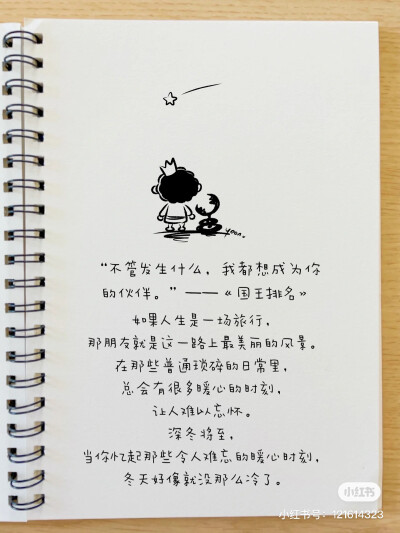 yoon.
“不管发生什么，我都想成为你
的伙伴。”——《国王排名》
如果人生是一场旅行，
那朋友就是这一路上最美丽的风景。
在那些普通琐碎的日常里，
总会有很多暖心的时刻，
让人难以忘怀。
深冬将至，
当你忆起那些令人难忘的暖心时刻，
冬天好像就没那么冷了。
小红书
小红书号：121614323